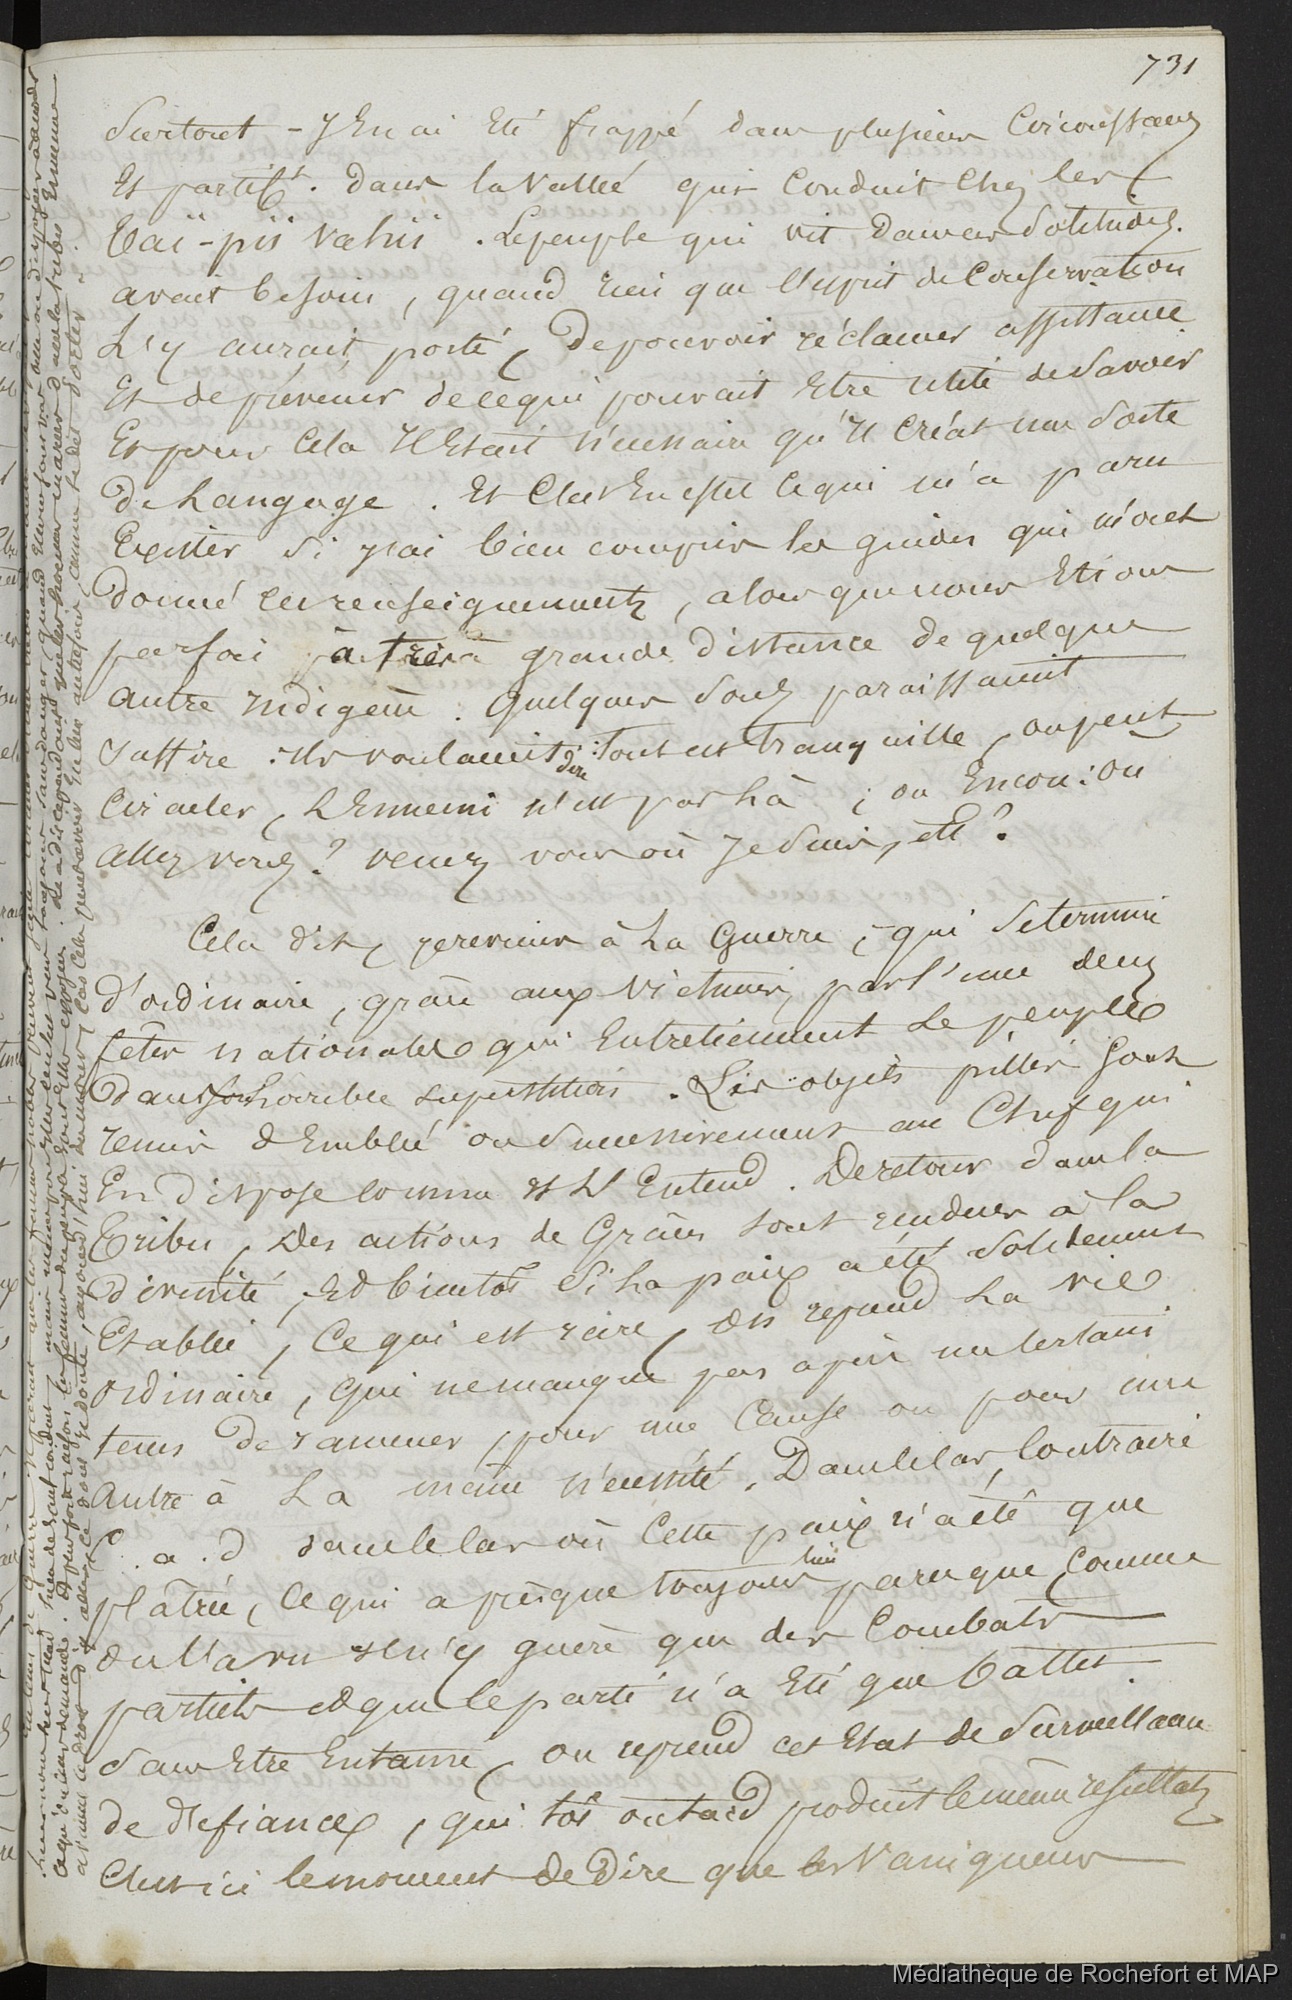 731
Surtout - J'En ai Eté frappé dans plusieurs Circonstances
Et partict. dans la Vallée qui Conduit Chez les
Taï-pii Vahii. Le peuple qui vit dans ces Solitudes.
avait besoin, quand rien que l'esprit de Conservation
L'y aurait porté, De pouvoir réclamer assistance
Et de prévenir de ce qui pouvait Etre utile de Savoir
Et pour Cela Il Etait nécessaire qu'Il Créât une Sorte
De Langage. Et C'est En effet ce qui m'a paru
Exister Si j'ai bien compris les guides qui m'ont
Donné ces renseignements, alors que nous Etions
parfois à très grande Distance de quelque
autre Indigène. Quelques Sons paraissaient
Suffire. Ils voulaient dire: Tout est tranquille, on peut
Circuler, L'Ennemi n'est pas Là; ou Encore: où
allez vous? venez voir où Je Suis, etc?
Cela dit, je reviens à La Guerre, qui Se termine
d'ordinaire, grâce aux Victimes, par l'une de ces
fêtes nationales qui Entretiennent Le peuple
Dans Son horrible Superstition. Les objets pillés Sont
remis d'Emblée ou Successivement au Chef qui
En dispose comme Il L'Entend. De retour dans la
Tribu, Des actions de Grâces Sont rendues à la
Divinité, Et bientôt Si La paix a été Solidement
Etablie, Ce qui est rare, On reprend La vie
ordinaire, qui ne manque pas après un certain
tems De ramener, pour une Cause ou pour une
autre à La même nécessité. Dans le cas Contraire
C. a. d dans le cas où Cette paix n'a été que
plâtrée, Ce qui a presque toujours lieu parce que, Comme
On l'a vu Il n'y guère que des Combats
partiels Et que le parti n'a Eté que battu
Sans Etre Entamé, On reprend cet Etat de Surveillance
de Défiance, qui tôt ou tard produit le même resultat,
C'est ici le moment de Dire que les Vainqueurs
Médiathèque de Rochefort et MAP